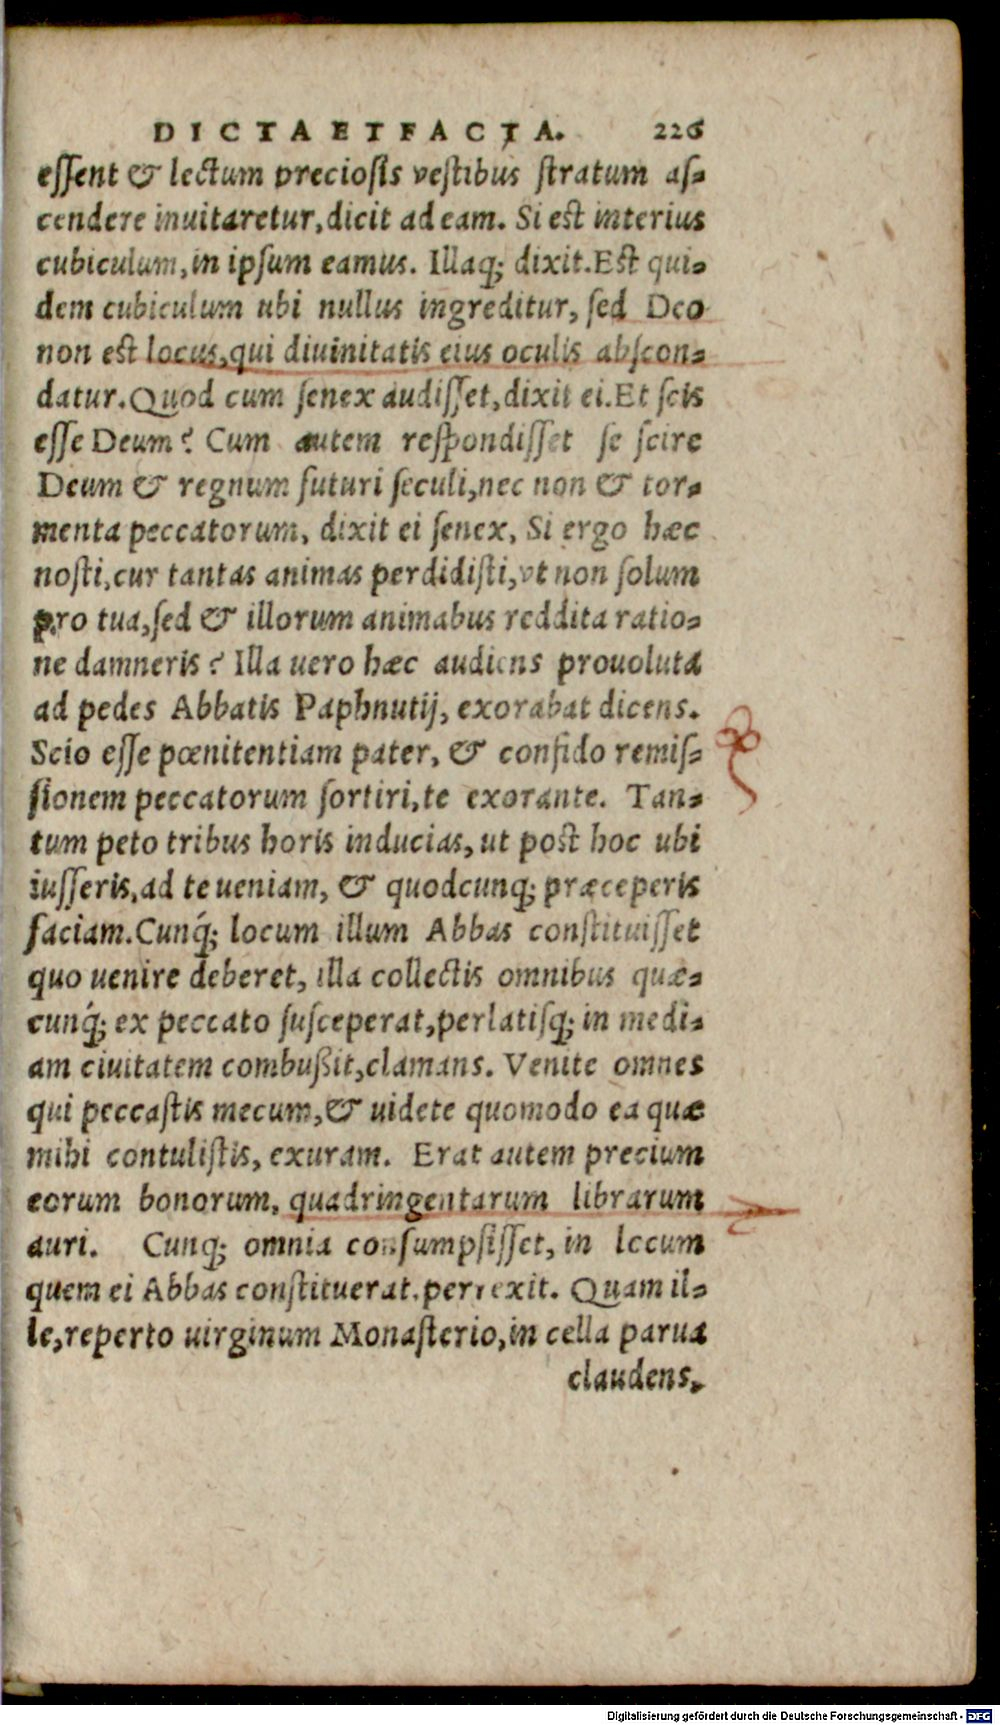 DICTA ET FACTA. 226
essent & lectum preciosis vestibus stratum as-
cendere inuitaretur, dicit ad eam. Si est interius
cubiculum, in ipsum eamus. Illaq; dixit. Est qui-
dem cubiculum ubi nullus ingreditur, sed Deo
non est locus, qui diuinitatis eius oculis abscon-
datur. Quod cum senex audisset, dixit ei. Et scis
esse Deum? Cum autem respondisset se scire
Deum & regnum futuri seculi, nec non & tor-
menta peccatorum, dixit ei senex, Si ergo hæc
nosti, cur tantas animas perdidisti, vt non solum
pro tua, sed & illorum animabus reddita ratio-
ne damneris? Illa uero hæc audiens prouoluta
ad pedes Abbatis Paphnutij, exorabat dicens.
Scio esse pœnitentiam pater, & confido remis-
sionem peccatorum sortiri, te exorante. Tan-
tum peto tribus horis inducias, ut post hoc ubi
iusseris, ad te ueniam, & quodcunq; præceperis
faciam. Cunq́; locum illum Abbas constituisset
quo uenire deberet, illa collectis omnibus quæ-
cunq́; ex peccato susceperat, perlatisq; in medi-
am ciuitatem combußit, clamans. Venite omnes
qui peccastis mecum, & uidete quomodo ea quæ
mihi contulistis, exuram. Erat autem precium
eorum bonorum, quadringentarum librarum
auri. Cunq; omnia consumpsisset, in locum
quem ei Abbas constituerat, perrexit. Quam il-
le, reperto uirginum Monasterio, in cella parua
claudens,
Digitalisierung gefördert durch die Deutsche Forschungsgemeinschaft - DFG